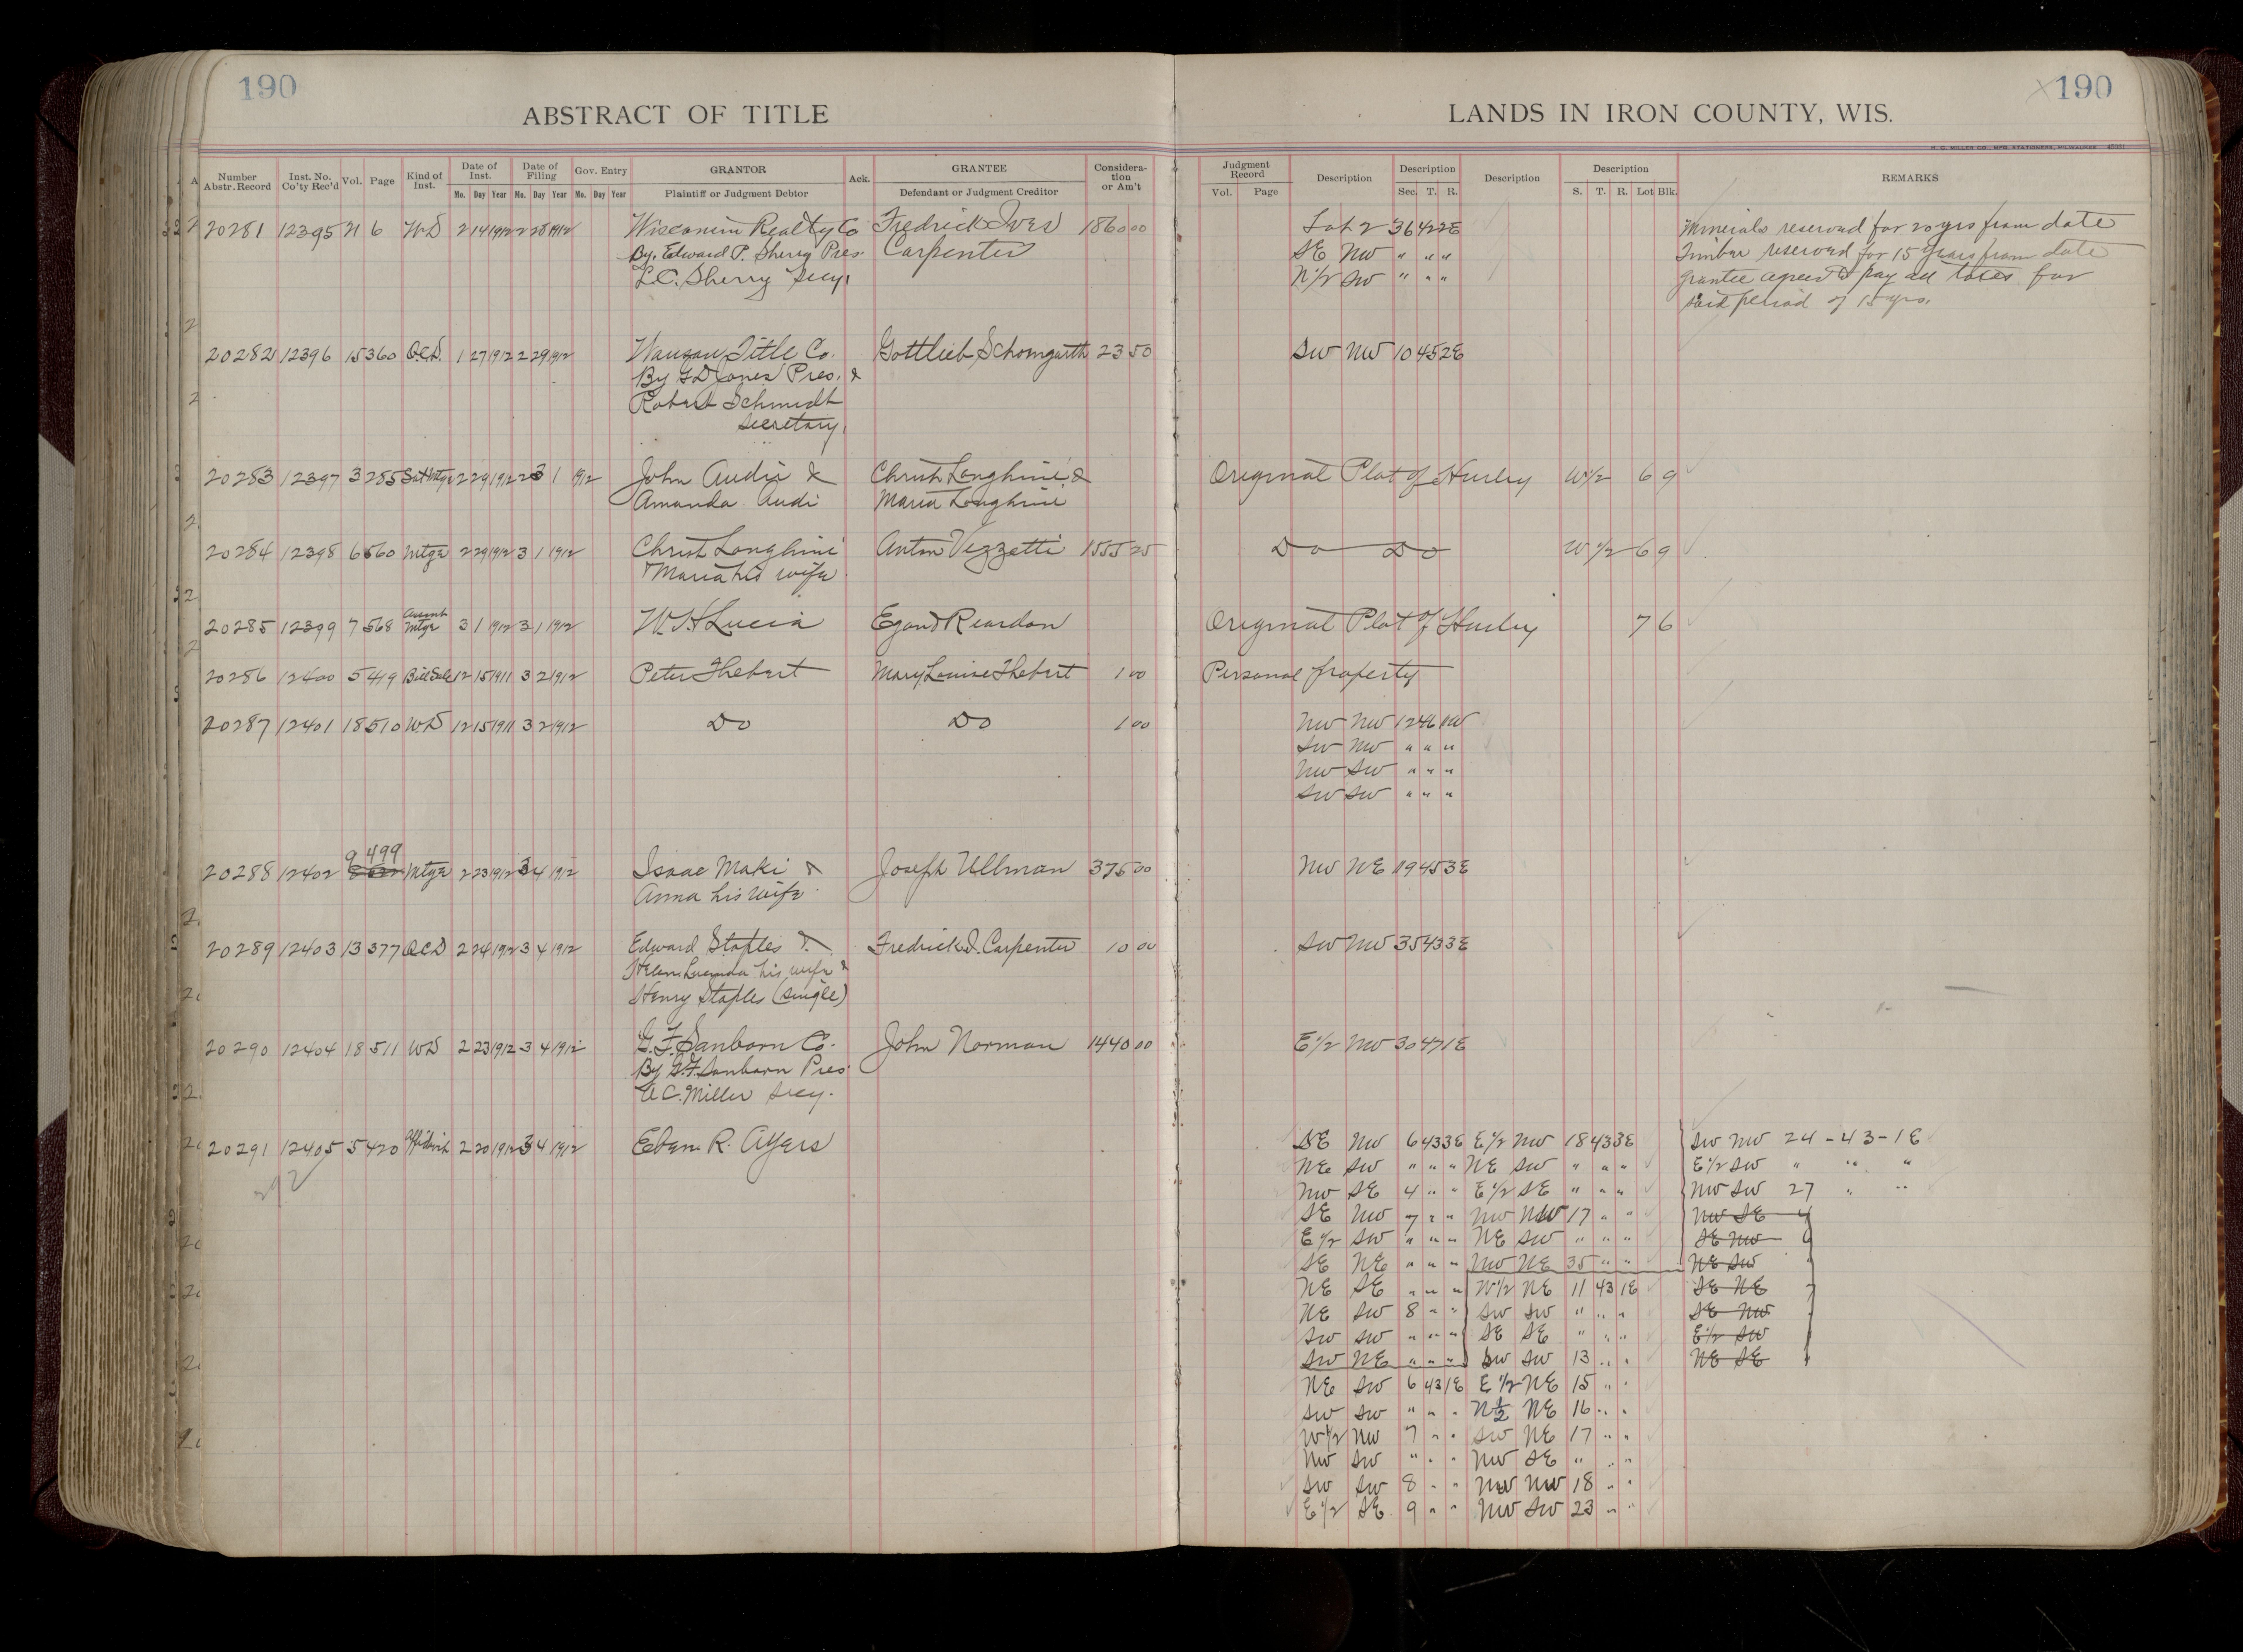 190
190
ABSTRACT OF TITLE
LANDS IN IRON COUNTY, WIS.
Number Abstr. Record Inst. No. Co'ty Rec'd Vol. Page Kind of Inst. Date of Inst. Mo. Day Year Date of Filing Mo. Day Year Gov. Entry Mo. Day Year GRANTOR Plaintiff or Judgment Debtor Ack. GRANTEE Defendant or Judgment Creditor Considera-tion or Am't
Judgment Record Vol. Page Description Description Sec. T. R. Description Description S. T. R. Lot Blk. REMARKS
20281 12395 21 6 WD 2 14 1912 2 28 1912 Wisconsin Realty Co Fredrick Ives 1860 00 Lot 2 36 42 2E Minerals reserved for 20 yrs from date
By. Edward P. Sherry Pres. Carpenter SE NW " " " Timber reserved for 15 years from date
L.C. Sherry Secy. N1/2 SW " " " grantee agrees to pay all taxes for
said period of 15 yrs.
20282 12396 15 360 Q.C.D. 1 27 1912 2 29 1912 Wausau Title Co. Gottlieb Schomgarth 23 50 SW NW 10 45 2E
By G D Jones Pres. &
Robert Schmidt
Secretary.
20283 12397 3 285 Sat Mtge 2 29 1912 3 1 1912 John Audi & Christ Longhini & Original Plat of Hurley W1/2 6 9
Amanda Audi Maria Longhini
20284 12398 6 560 Mtge 2 29 1912 3 1 1912 Christ Longhini Anton Vezzetti 1555 25 Do Do W1/2 6 9
& Maria his wife
20285 12399 7 568 Mtge 3 1 1912 3 1 1912 W.H. Lucia Egan & Reardon Original Plat of Hurley 7 6
20286 12400 5 419 Bill Sale 12 15 1911 3 2 1912 Peter Thebert Mary Louise Thebert 1 00 Personal property
20287 12401 18 510 WD 12 15 1911 3 2 1912 Do Do 1 00 NW NW 12 46 1W
SW NW " " "
NW SW " " "
SW SW " " "
9 499
20288 12402 Mtge 2 23 1912 3 4 1912 Isaac Maki & Joseph Ullman 375 00 NW NE 19 45 3E
Anna his wife
20289 12403 13 377 QCD 2 24 1912 3 4 1912 Edward Staples & Fredrick I. Carpenter 10 00 SW NW 35 43 3E
his wife &
Henry Staples (single)
20290 12404 18 511 WD 2 23 1912 3 4 1912 G.F. Sanborn Co. John Norman 1440 00 E1/2 NW 30 47 1E
By G.F. Sanborn Pres
A C. Miller Secy.
20291 12405 5 420 Affidavit 2 20 1912 3 4 1912 Eben R. Ayers SE NW 6 43 3E E1/2 NW 18 43 3E SW NW 24 - 43 - 1E
NE SW " " " NE SW " " " E1/2 SW " " "
NW SE 4 " " E1/2 SE " " " NW SW 27 " "
SE NW 7 " " NW NW 17 " " NW SE 4
E1/2 SW " " " NE SW " " " SE NW 6
SE NE " " " NW NE 35 " " NE SW "
NE SE " " " W1/2 NE 11 43 1E SE NE 7
NE SW 8 " " SW SW " " " SE NW "
SW SW " " " SE SE " " " E1/2 SW
SW NE " " " SW SW 13 " " NE SE "
NE SW 6 43 1E E1/2 NE 15 " "
SW SW " " " N1/2 NE 16 " "
W1/2 NW 7 " " SW NE 17 " "
NW SW " " " NW SE " " "
SW SW 8 " " NW NW 18 " "
E1/2 SE 9 " " NW SW 23 " "